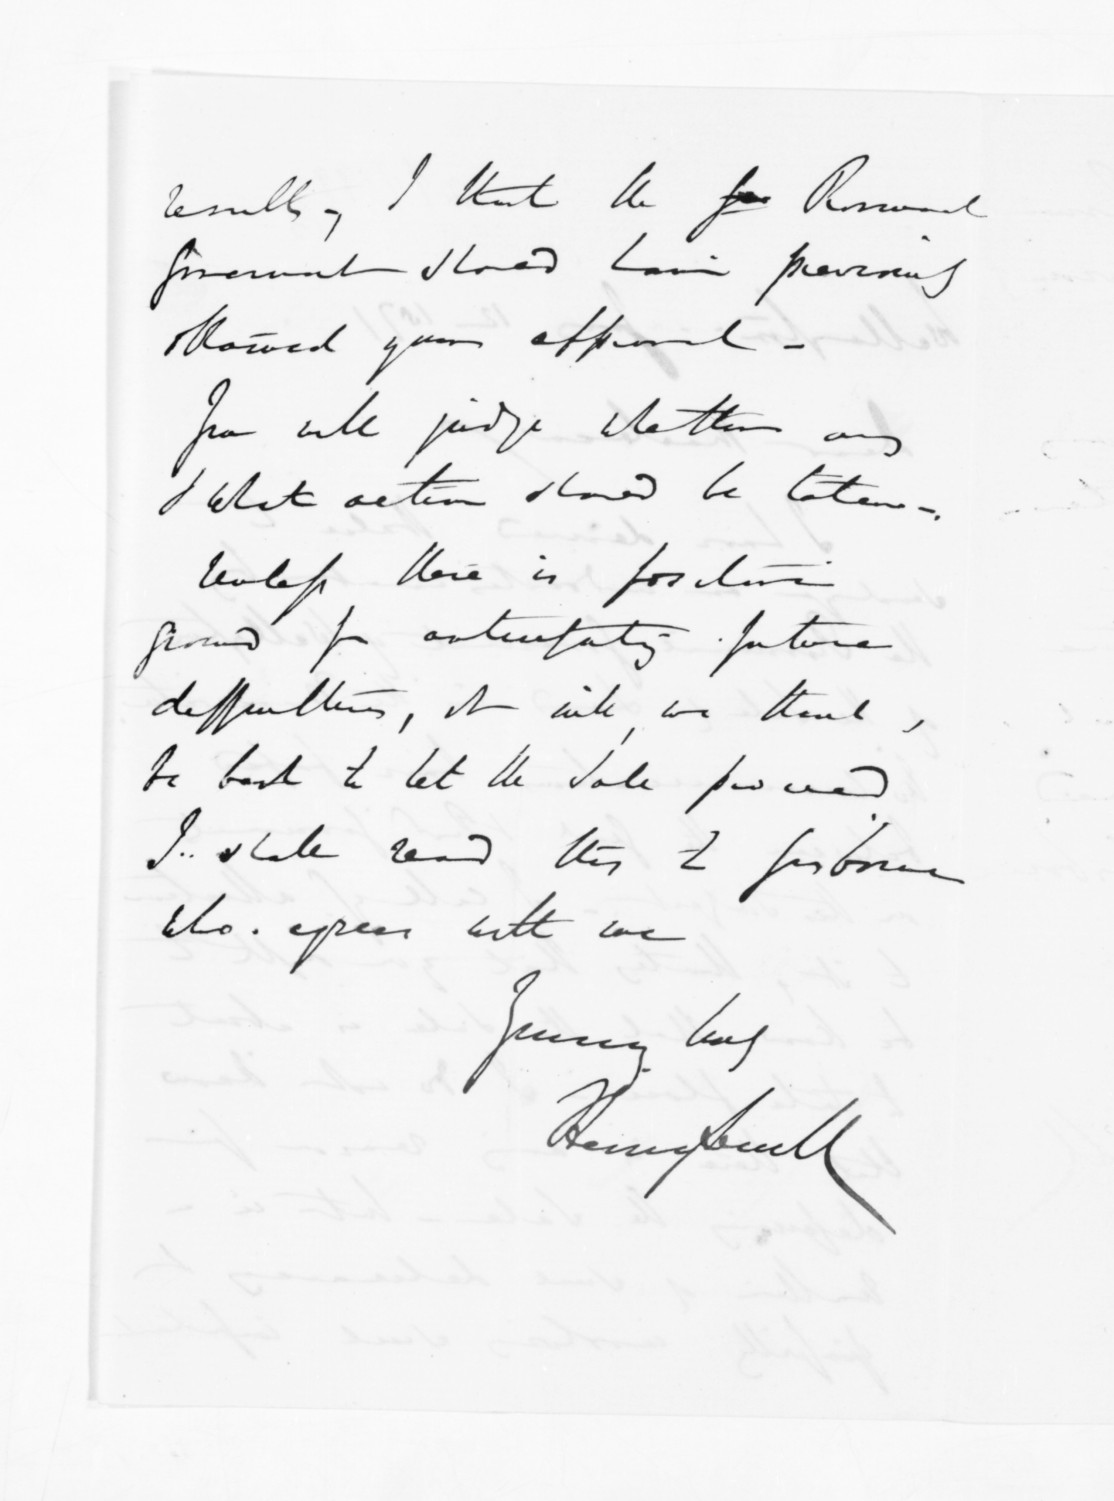 results, & that the Provincial
Government should have previously
obtained your approval -
You will judge whether any
& what action should be taken -
Unless there is positive
ground for anticipating future
difficulties, it will, we think,
be best to let the Sale proceed
I shall read this to Gisborne
who agrees with me
Yours truly
Henry Sewell